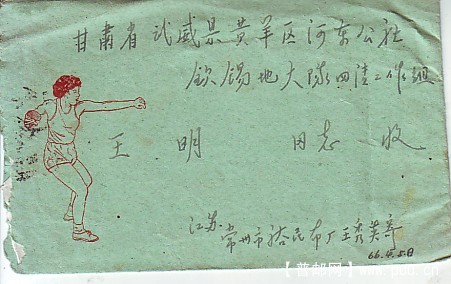 甘肃省武威县黄羊区河东公社
钦锡地大队四清工作组
王 明 同志 收
江苏
常州市裕民布厂王秀英寄
66.4.5日
【普邮网】www.pu.cn